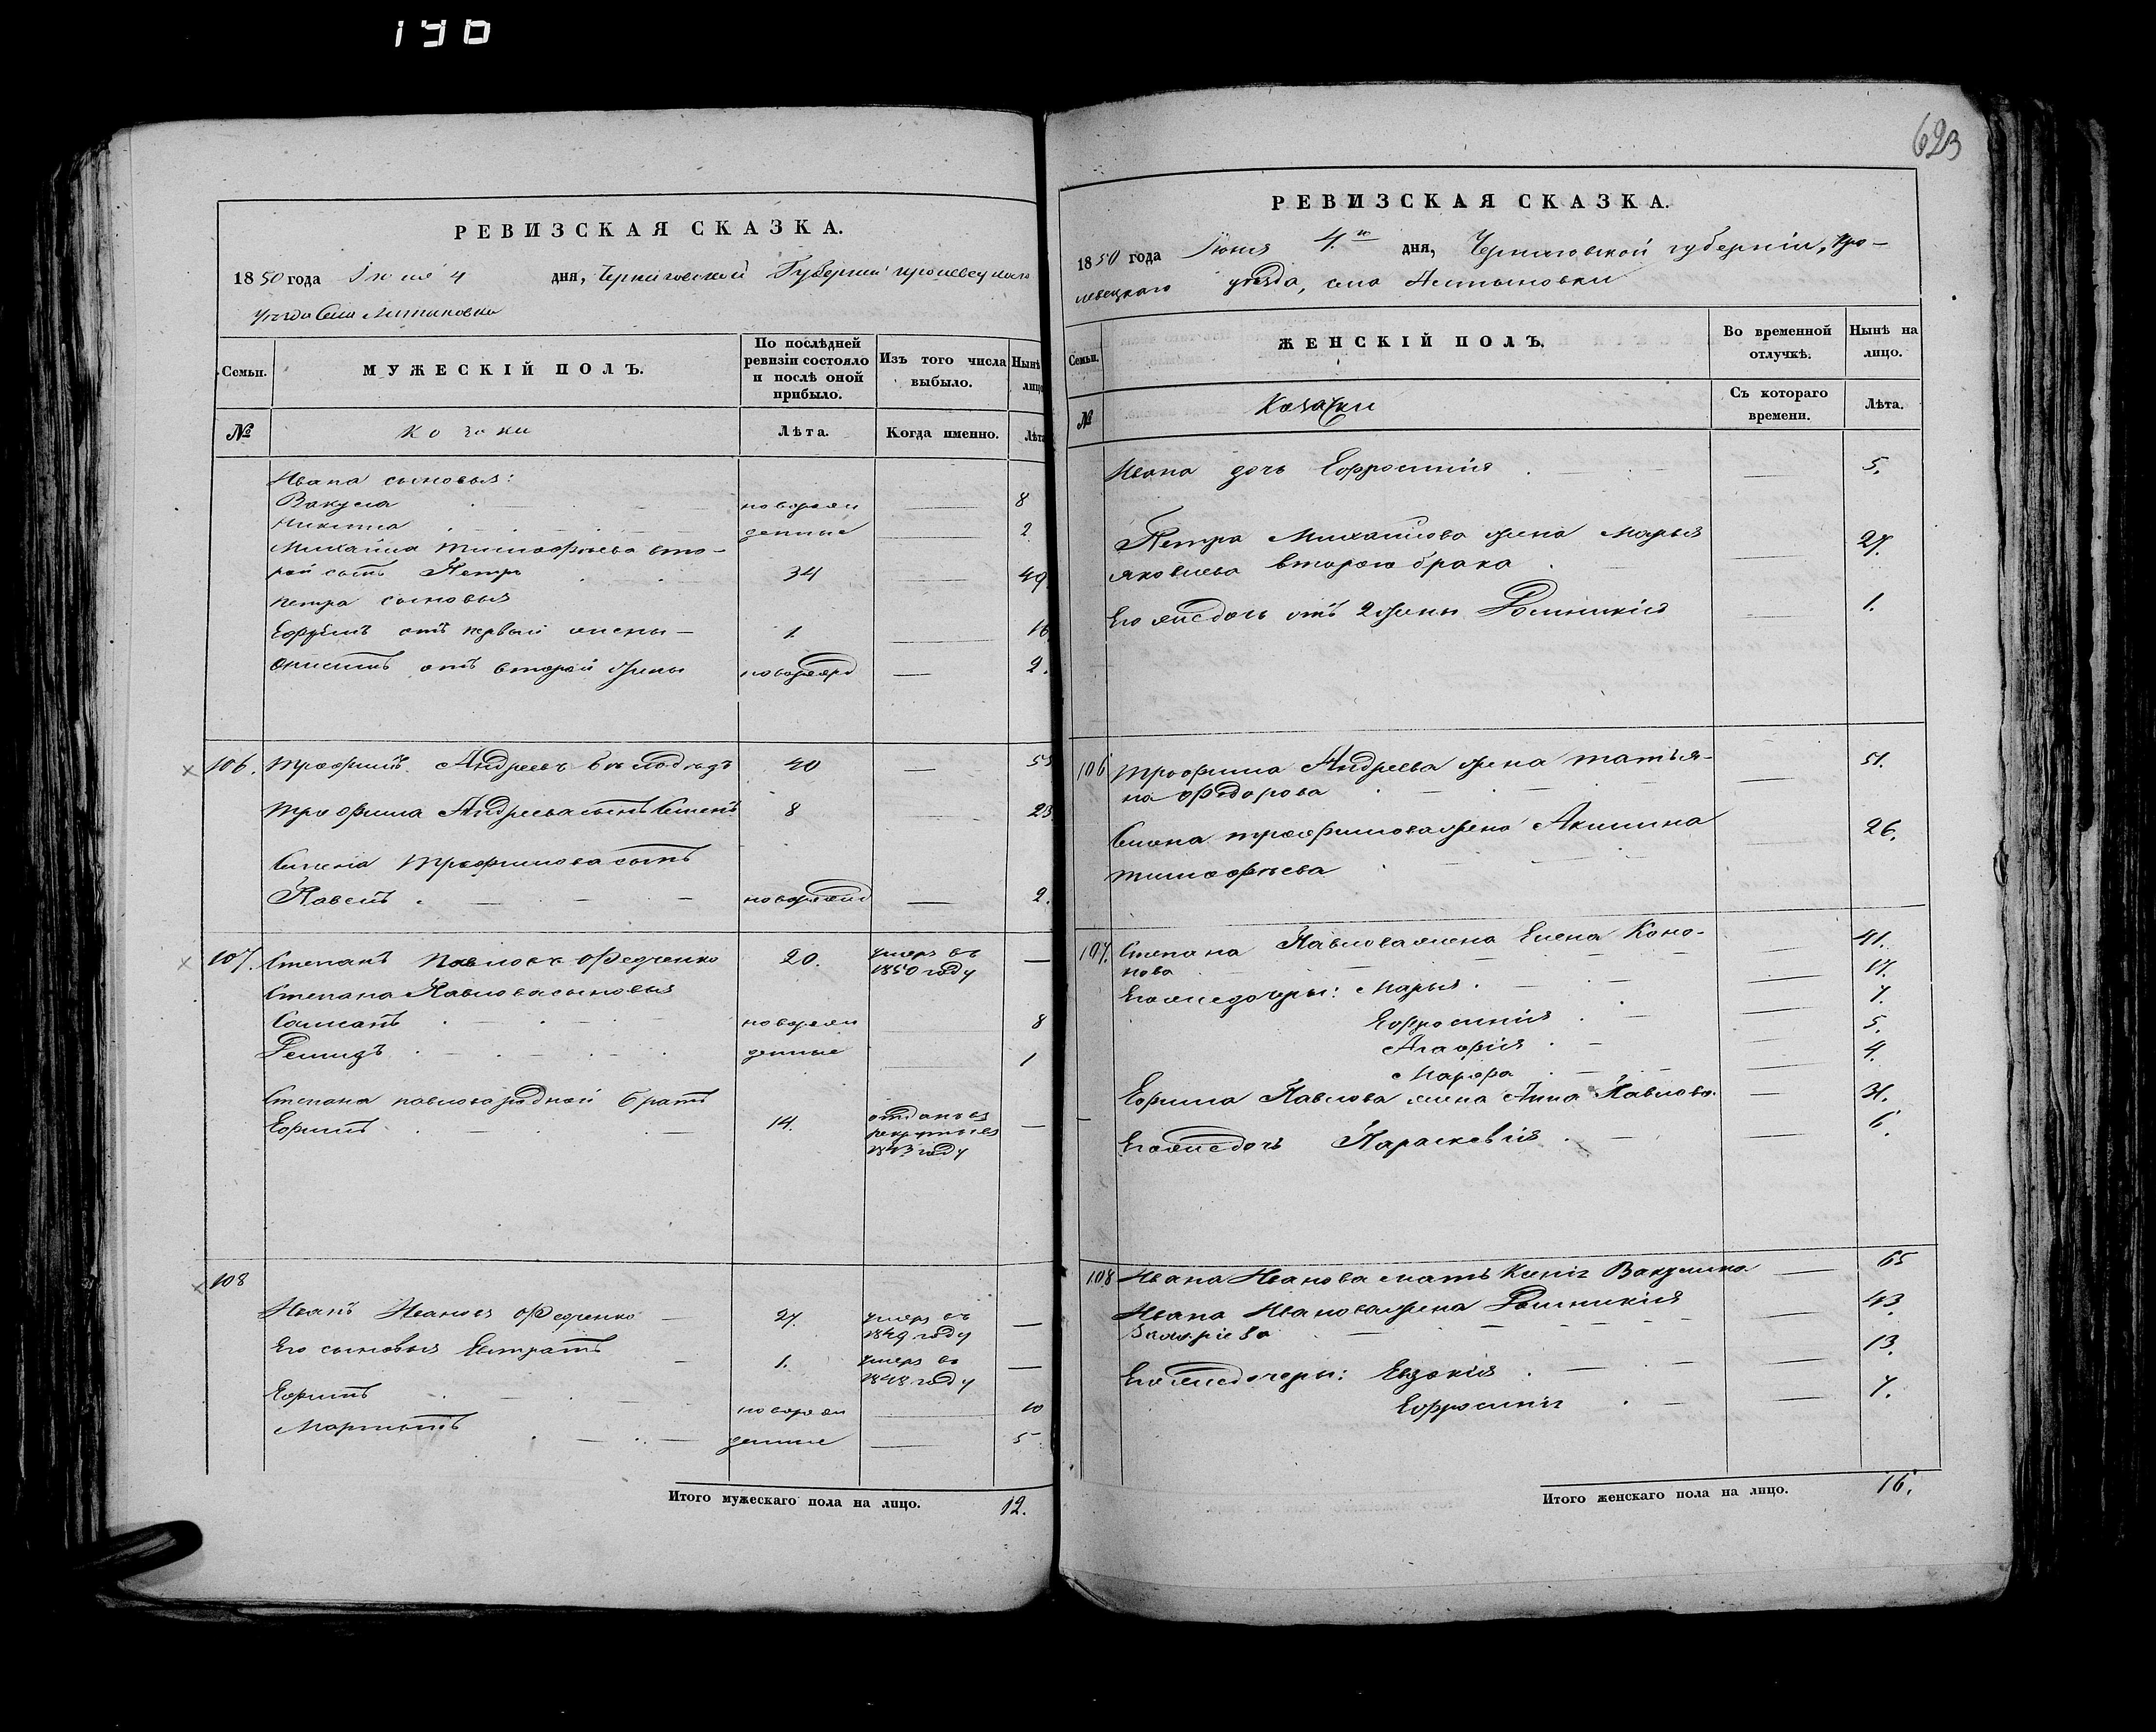 196
РЕВИЗСКАЯ СКАЗКА.
1850 года Іюня 4 дня, Черниговской Губерніи кролевецкаго
уезда Села
МУЖЕСКІЙ ПОЛЪ.
Семьи.
По послѣдней
ревизіи состояло
и послѣ оной
прибыло.
Изъ того числа
выбыло.
Нынѣ
лицо
№
Козаки
Лѣта.
Когда именно.
Лѣта
Ивана сыновья:
Вакула новорож 8
Никита денные 2
Михайла Тимофѣева вто-
рой сынъ Петръ 34 49
Петра сыновья
Ефремъ отъ первой жены 1 16
отъ второй жены новорожд 2.
106. Трофимъ Андреевъ 40 55
Трофима Андреева сынъ Семенъ 8 23
Семена Трофимова сынъ
Павелъ новорожд 2.
107. Степанъ Павловъ Федченко 20. умеръ въ
1850 году
Степана Павлова сыновья
новорож 8
денные 1
Степана Павлова родной братъ
Ефимъ 14. отданъ въ
рекруты въ
1843 году
108
Иванъ Ивановъ Федченко 27. умеръ въ
1849 году
Его сыновья Евстратъ 1. умеръ въ
1848 году
Ефимъ новорож 10
Мартынъ денные 5
Итого мужескаго пола на лицо. 12.
623
РЕВИЗСКАЯ СКАЗКА.
1850 года Іюня 4.го дня, Черниговской губерніи, Кро-
левецкаго уезда, села
Семьи.
ЖЕНСКІЙ ПОЛЪ.
Во временной
отлучкѣ.
Нынѣ на
лицо.
№
Козачки
Съ котораго
времени.
Лѣта.
Ивана дочь Ефросинія 5.
Петра Михайлова жена Марья 27.
Яковлева второго брака
Его же дочь отъ 2 жены Домникія 1.
106 Трофима Андреева жена Татья- 51.
на Федорова
Семена Трофимова жена Акилина 26.
Тимофѣева
107. Степана Павлова жена Елена Коно- 41.
нова
Его же дочери: Марья 17.
Ефросинія 7.
Агафія 5.
Марфа 4.
Ефима Павлова жена Анна Павлова 31.
Его же дочь Параскевія 6.
108 Ивана Иванова мать Ксенія Вакулина 65
Ивана Иванова жена Домникія 43.
Его же дочери: Евдокія 13.
Ефросинія 7.
Итого женскаго пола на лицо. 16.